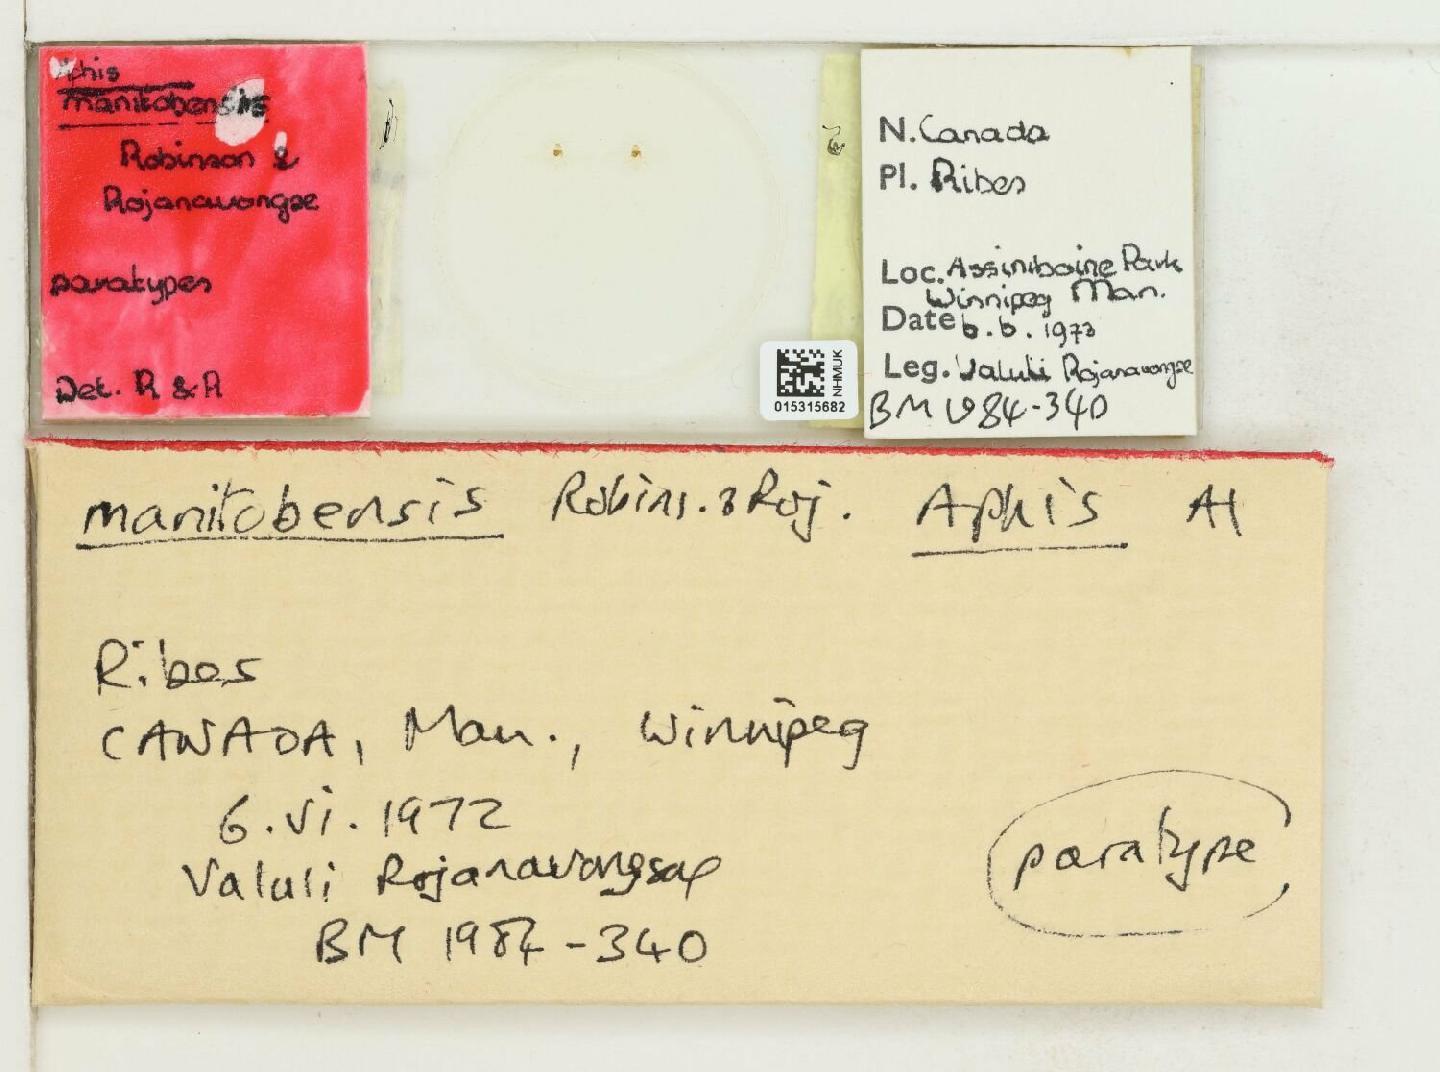 Aphis
manitobensis
Robinson &
Rojanavongse
paratypes
Det. R & R
NHMUK
015315682
N. Canada
Pl. Ribes
Loc. Assiniboine Park
Winnipeg Man.
Date 6.6.1973
Leg. Valuli Rojanavongse
BM 1984-340
manitobensis Robins. & Roj. Aphis A1
Ribes
CANADA, Man., Winnipeg
6.vi.1972
Valuli Rojanavongsae
paratype
BM 1984-340